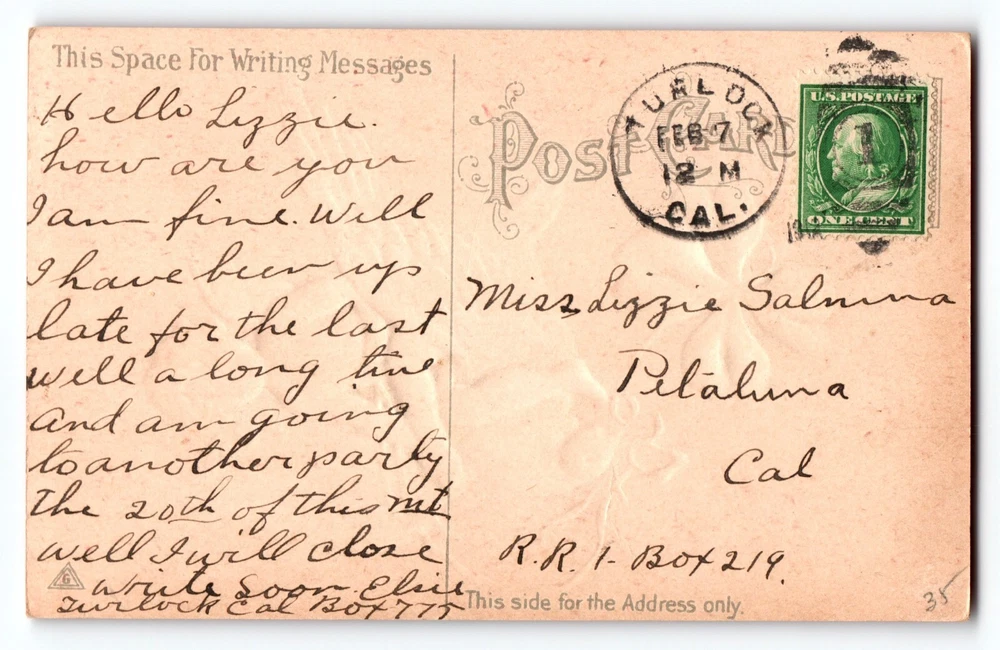 This Space For Writing Messages
Hello Lizzie.
how are you
I am fine. Well
I have been up
late for the last
well a long time
and am going
to another party
the 20th of this mt
well I will close
write Soon Elsie
Turlock Cal Box 775
G
POST CARD
TURLOCK
FEB 7
12 M
CAL.
U.S. POSTAGE
1
ONE CENT
Miss Lizzie Salmina
Petaluma
Cal
R.R. 1. Box 219.
This side for the Address only.
35